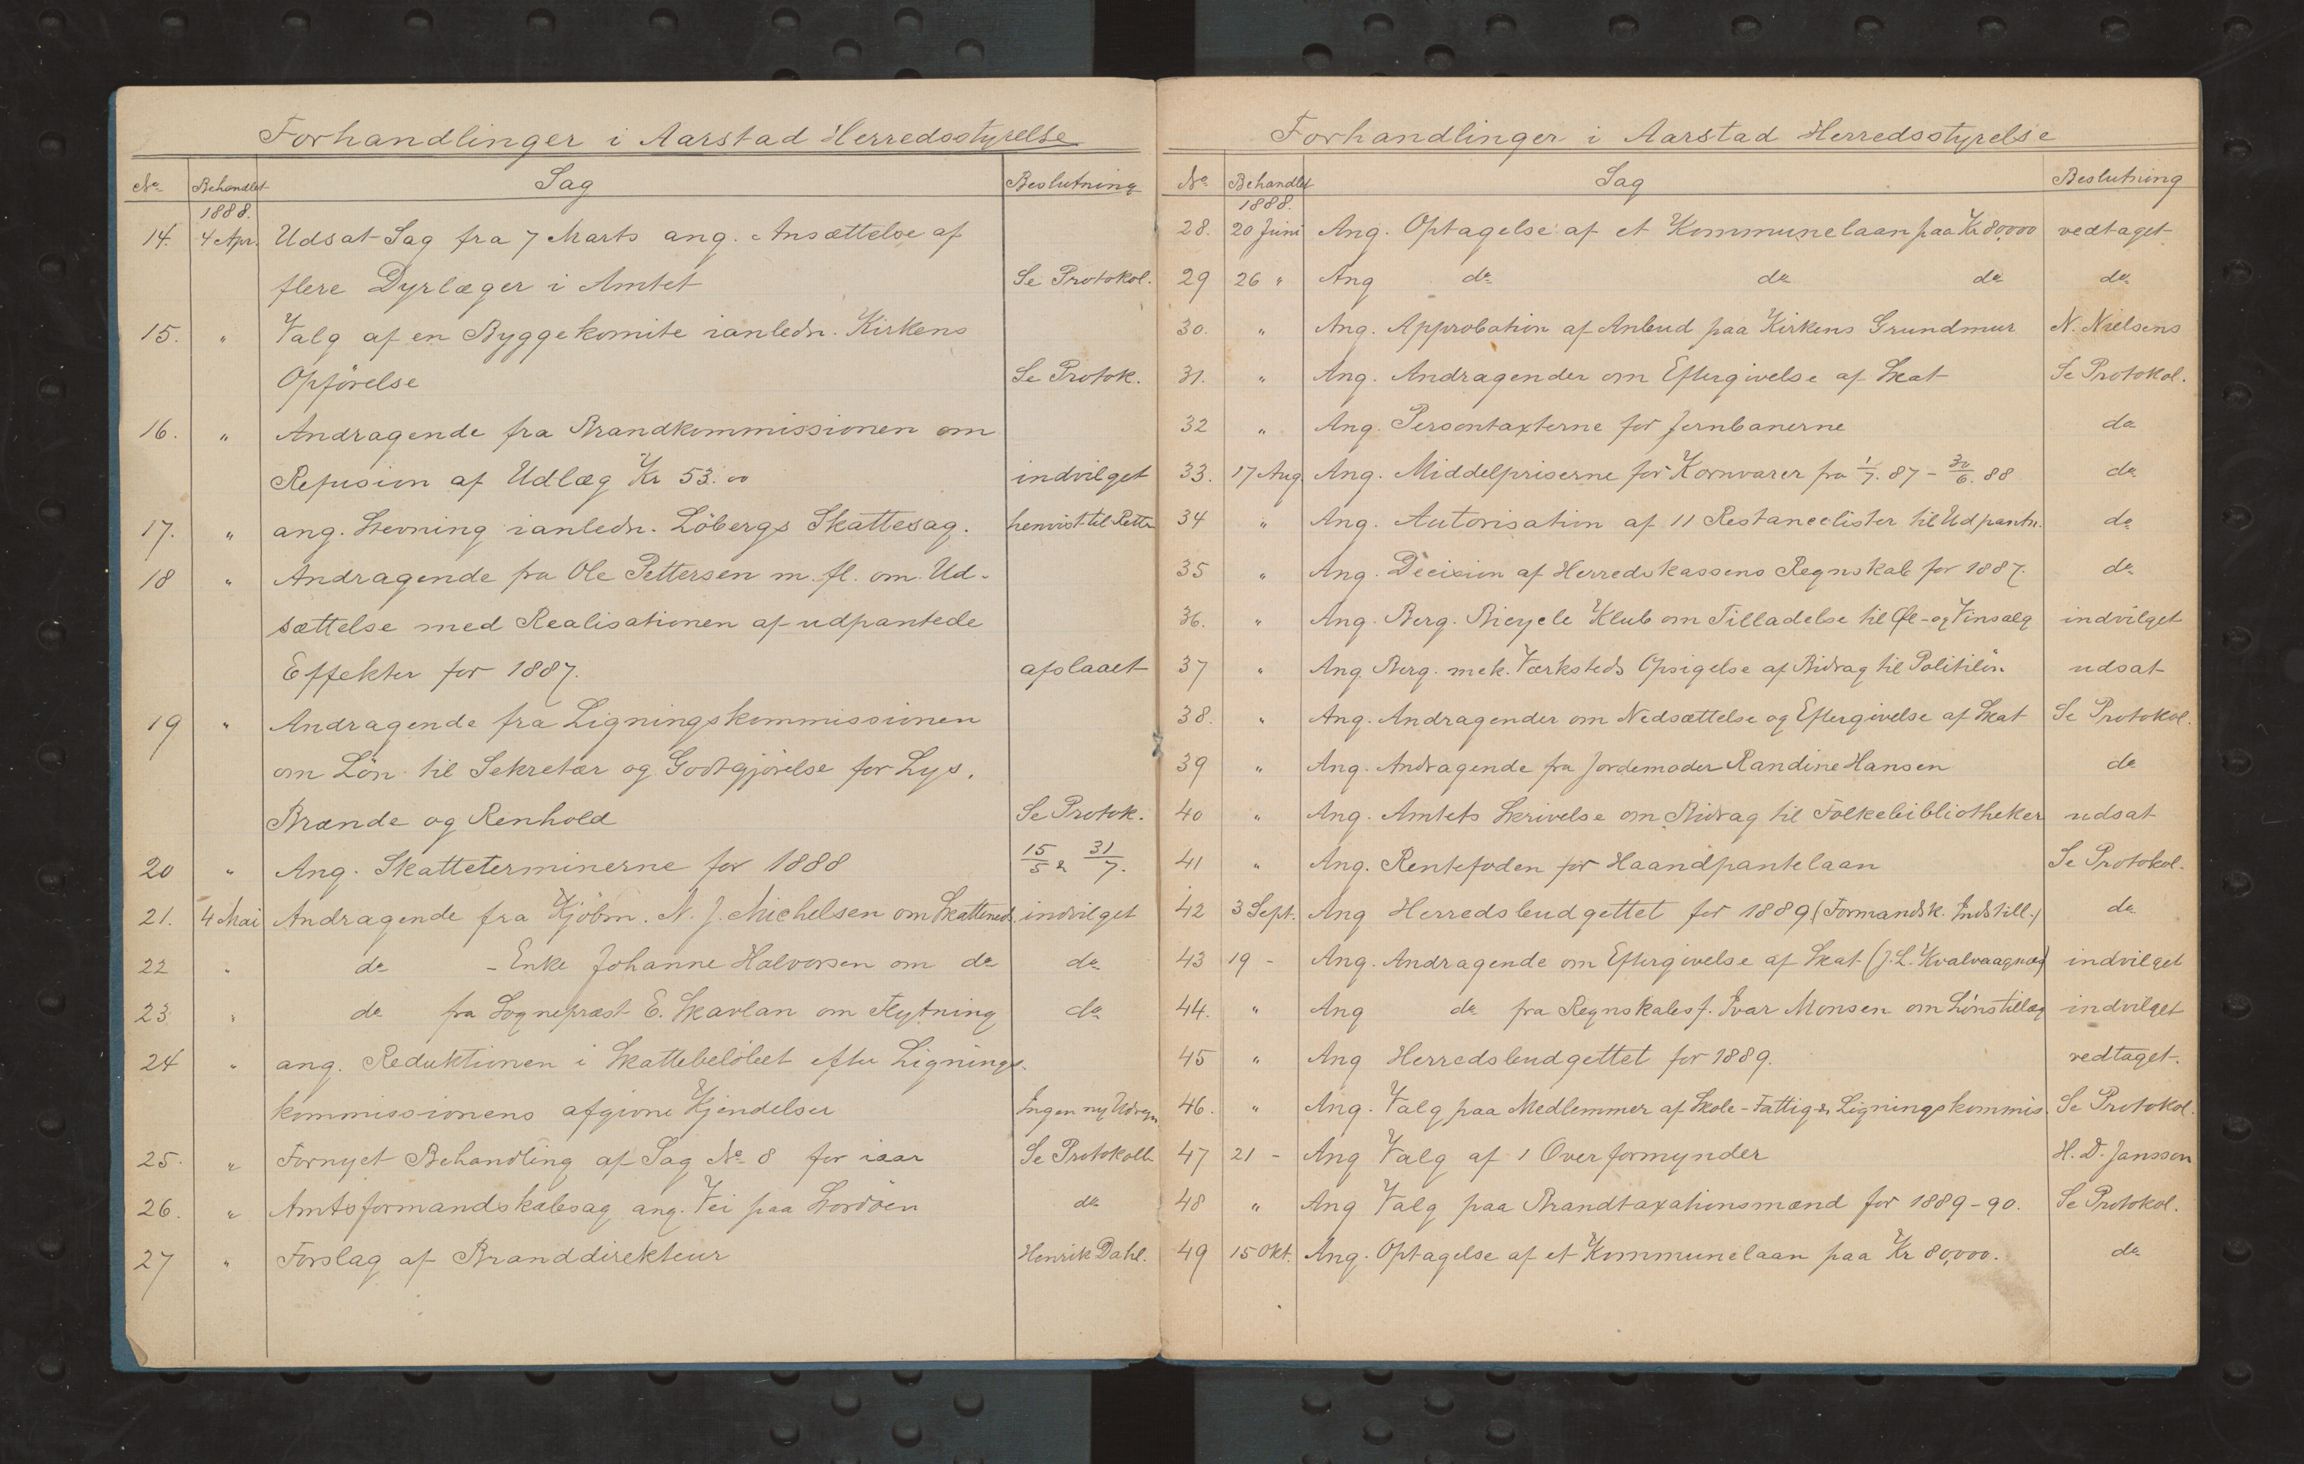 Forhandlinger i Aarstad Herredsstyrelse
No Behandlet Sag Beslutning
1888.
14. 4 Apr. Udsat Sag fra 7 Marts ang. Ansættelse af
flere Dyrlæger i Amtet Se Protokol.
15. " Valg af en Byggekomite ianledn. Kirkens
Opförelse Se Protok.
16. " Andragende fra Brandkommissionen om
Refusion af Udlæg Kr 53.00 indvilget
17. " ang. Stevning ianledn. Löbergs Skattesag. henvist til Retten
18 " Andragende fra Ole Pettersen m. fl. om Ud-
sættelse med Realisationen af udpantede
Effekter for 1887. afslaaet
19 " Andragende fra Ligningskommissionen
om Lön til Sekretær og Godtgjörelse for Lys,
Brænde og Renhold Se Protok.
20 " Ang. Skatteterminerne for 1888 15/5 & 31/7.
21. 4 Mai Andragende fra Kjöbm. N. J. Michelsen om Skatteneds. indvilget
22 " do - Enke Johanne Halvorsen om do do
23 " do fra Sognepræst E. Skavlan om Flytning do
24 " ang. Reduktionen i Skattebelöbet efter Lignings-
kommissionens afgivne Kjendelser Ingen ny Udregn.
25. " Fornyet Behandling af Sag No 8 for iaar Se Protokoll
26. " Amtsformandskabssag ang. Vei paa Stordöen do
27 " Forslag af Branddirekteur Henrik Dahl.
Forhandlinger i Aarstad Herredsstyrelse
No Behandlet Sag Beslutning
1888.
28. 20 Juni Ang. Optagelse af et Kommunelaan paa Kr 80,000 vedtaget
29 26 " Ang do do do do
30. " Ang. Approbation af Anbud paa Kirkens Grundmur N. Nielsens
31. " Ang. Andragender om Eftergivelse af Skat Se Protokol.
32 " Ang. Persontaxterne for Jernbanerne do
33. 17 Aug Ang. Middelpriserne for Kornvarer fra 1/7. 87 - 30/6. 88 do
34 " Ang. Autorisation af 11 Restancelister til Udpantn. do
35 " Ang. Decision af Herredskassens Regnskab for 1887. do
36. " Ang. Berg. Bicycle Klub om Tilladelse til Øl- og Vinsalg indvilget
37 " Ang. Berg. mek. Værksteds Opsigelse af Bidrag til Politilön udsat
38. " Ang. Andragender om Nedsættelse og Eftergivelse af Skat Se Protokol.
39 " Ang. Andragende fra Jordemoder Randine Hansen do
40 " Ang. Amtets Skrivelse om Bidrag til Folkebibliotheker udsat
41 " Ang. Rentefoden for Haandpantelaan Se Protokol.
42 3 Sept. Ang Herredsbudgettet for 1889 (Formandsk. Indstill.) do
43 19 - Ang. Andragende om Eftergivelse af Skat (J. L. Kvalvaagnæs) indvilget
44. " Ang do fra Regnskabsf. Ivar Monsen om Lönstillæg indvilget
45 " Ang Herredsbudgettet for 1889. vedtaget.
46. " Ang. Valg paa Medlemmer af Skole- Fattig- & Ligningskommis. Se Protokol.
47 21 - Ang Valg af 1 Overformynder H. D. Janssen
48 " Ang Valg paa Brandtaxationsmænd for 1889-90. Se Protokol.
49 15 Okt. Ang. Optagelse af et Kommunelaan paa Kr 80,000. do